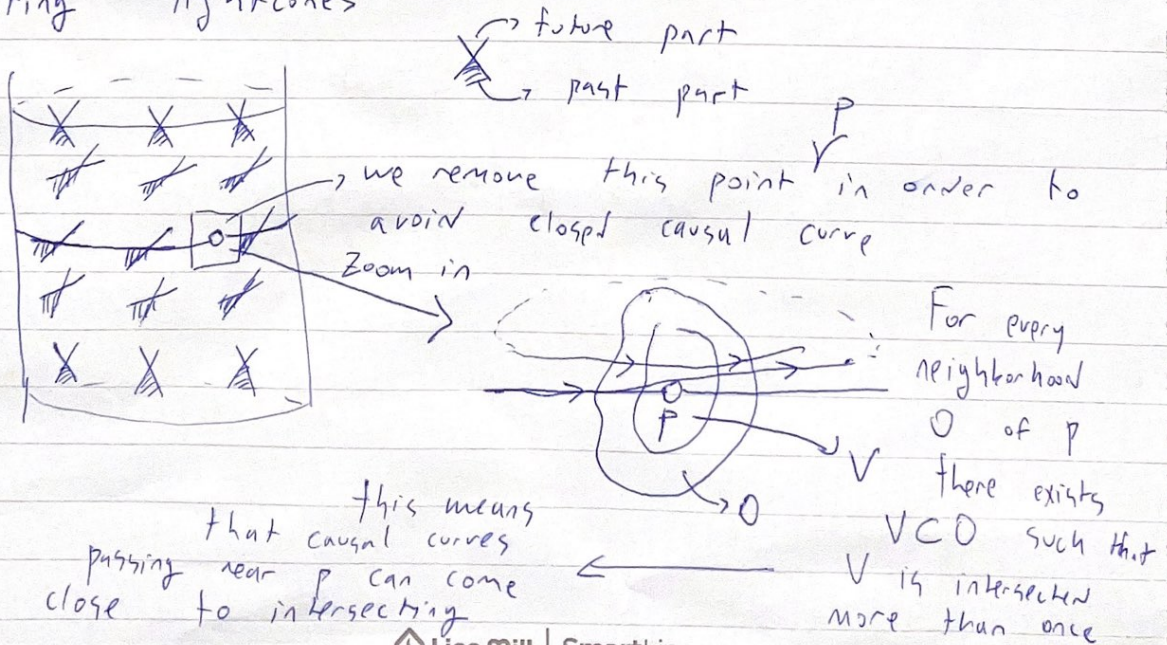 lightcones
future part
past part
P
we remove this point in order to
avoid closed causal curve
Zoom in
For every
neighborhood
O of p
there exists
V⊂O such that
V is intersected
more than once
P
V
O
this means
that causal curves
passing near p can come
close to intersecting